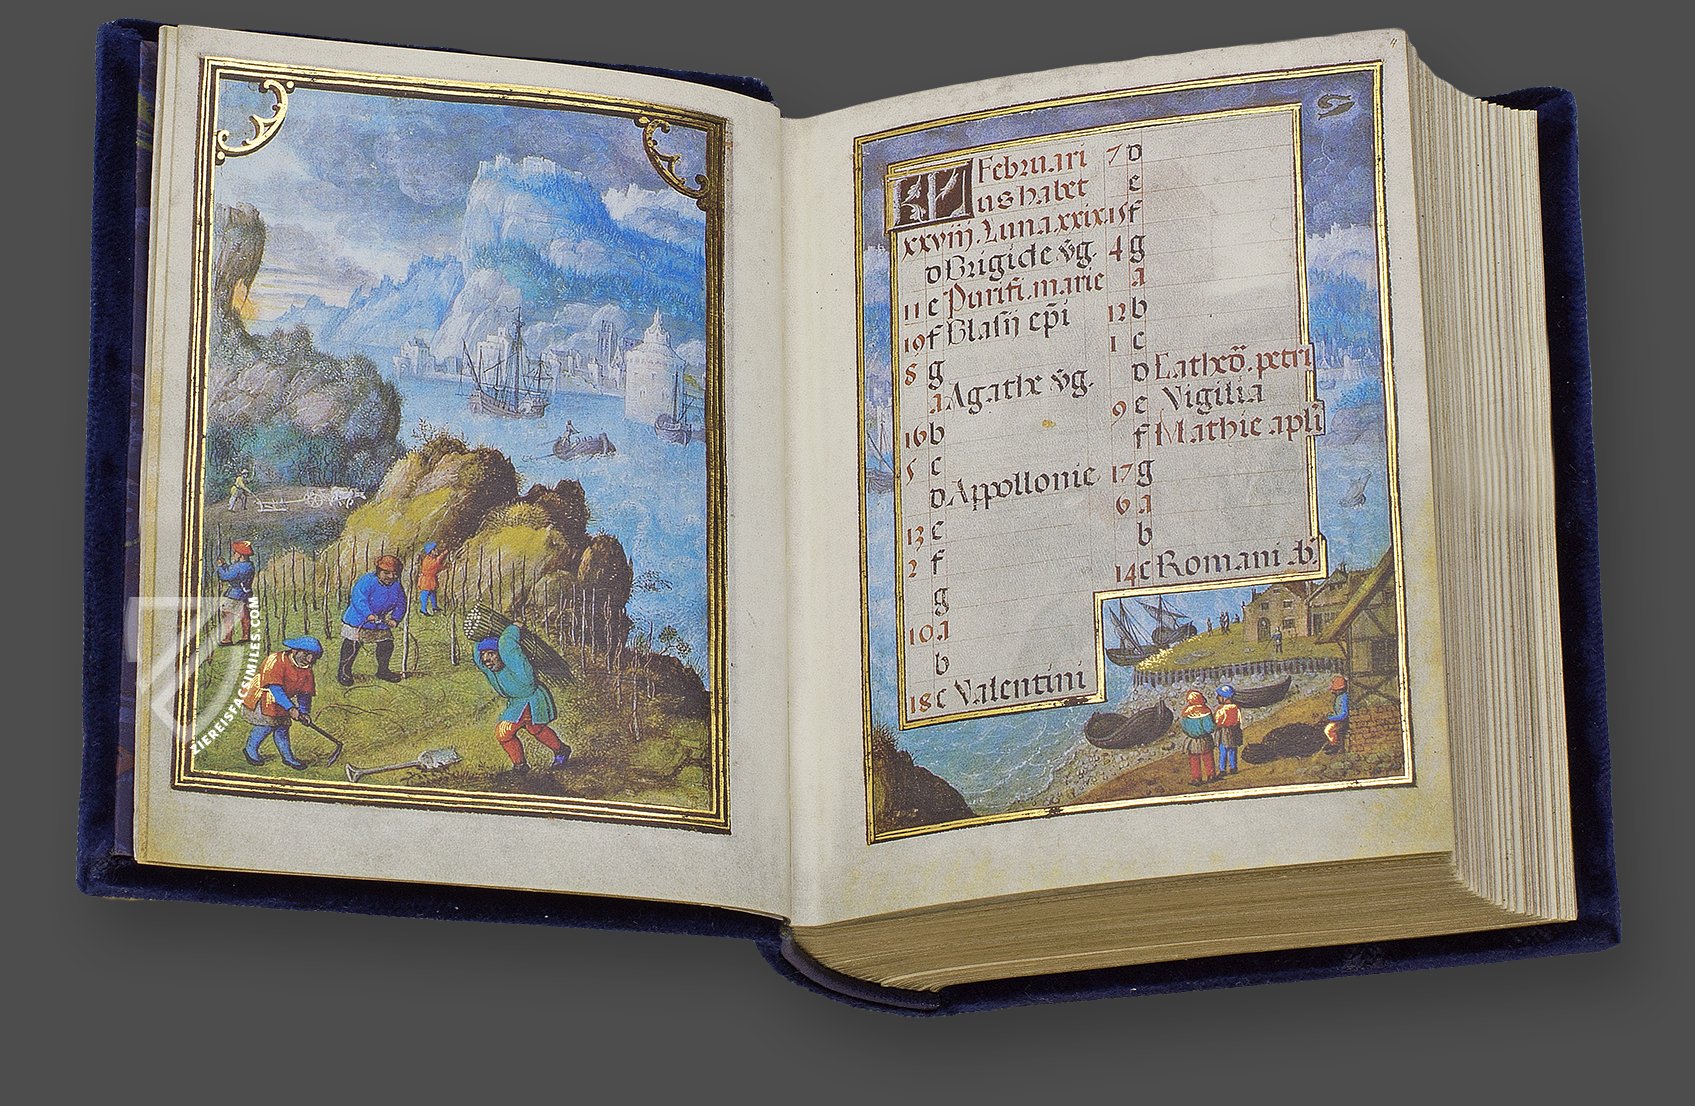 KL Februari
us habet
xxviij. Luna. xxix.
d Brigide v̄g.
11 e Purifi. marie
19 f Blasij ep̄i
8 g
A Agathe v̄g.
16 b
5 c
d Appollonie
13 e
2 f
g
10 A
b
18 c Valentini
7 d
e
15 f
4 g
A
12 b
1 c
d Cathed̄. petri
9 e Vigilia
f Mathie apli
17 g
6 A
b
14 c Romani ab̄.
ZIEREISFACSIMILES.COM